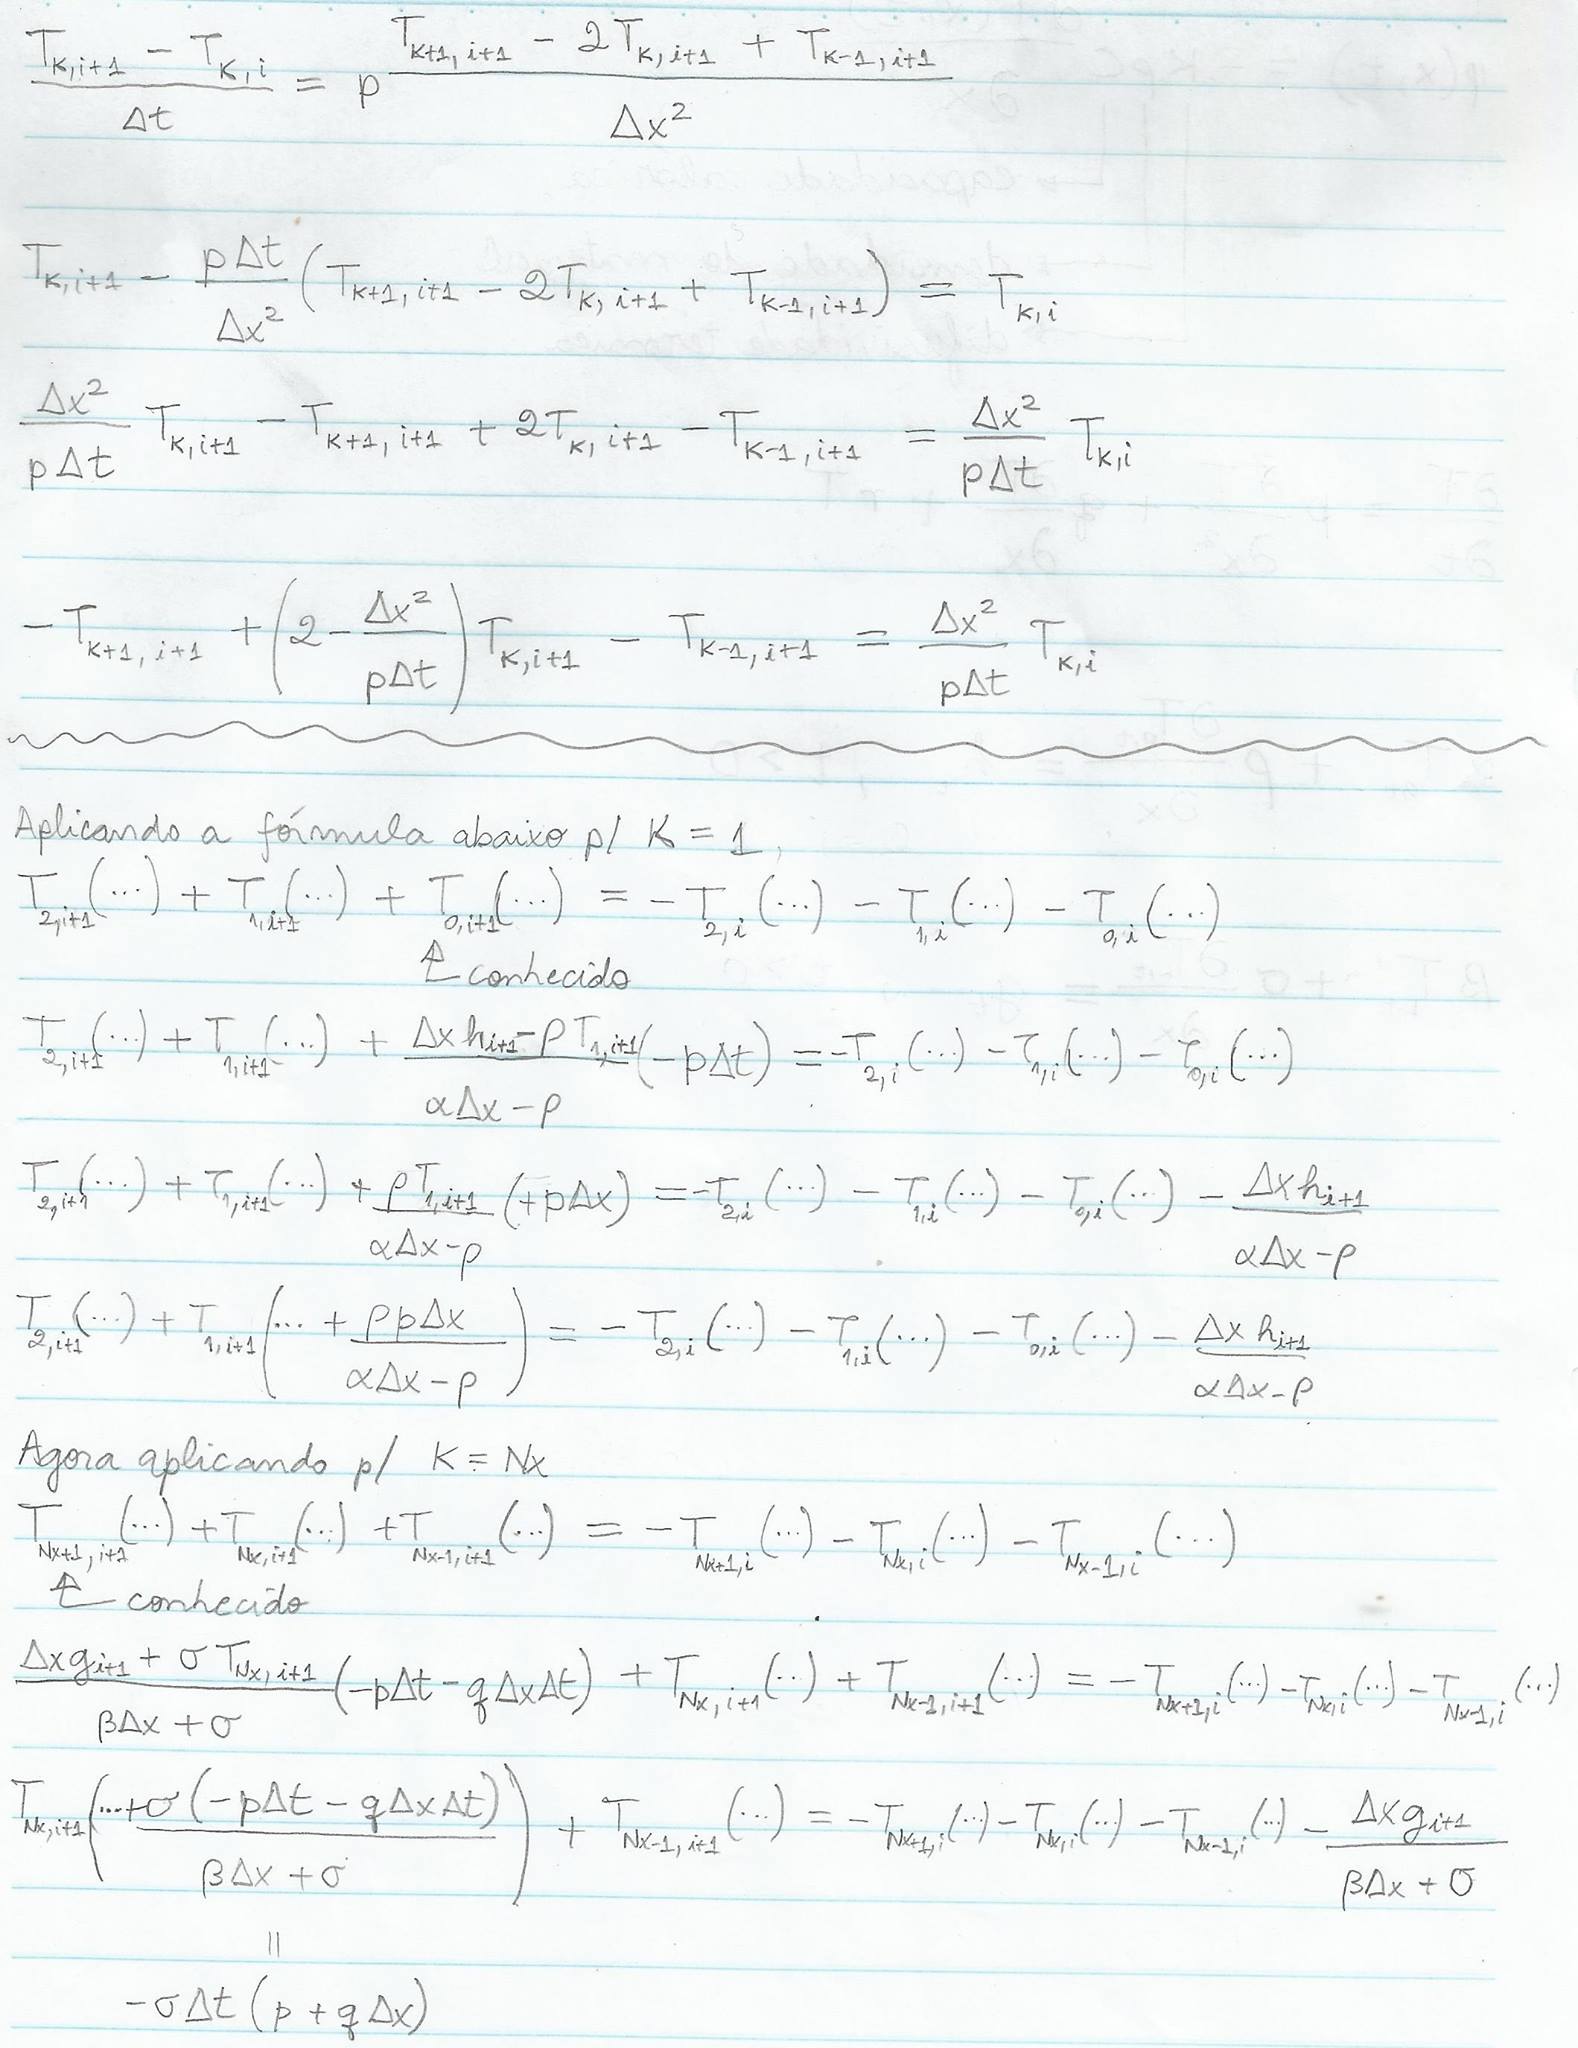 (T_{K,i+1} - T_{K,i})/Δt = p (T_{K+1,i+1} - 2T_{K,i+1} + T_{K-1,i+1})/Δx²
T_{K,i+1} - pΔt/Δx² (T_{K+1,i+1} - 2T_{K,i+1} + T_{K-1,i+1}) = T_{K,i}
Δx²/pΔt T_{K,i+1} - T_{K+1,i+1} + 2T_{K,i+1} - T_{K-1,i+1} = Δx²/pΔt T_{K,i}
-T_{K+1,i+1} + (2 - Δx²/pΔt) T_{K,i+1} - T_{K-1,i+1} = Δx²/pΔt T_{K,i}
Aplicando a fórmula abaixo p/ K = 1,
T_{2,i+1}(...) + T_{1,i+1}(...) + T_{0,i+1}(...) = -T_{2,i}(...) - T_{1,i}(...) - T_{0,i}(...)
↑ conhecido
T_{2,i+1}(...) + T_{1,i+1}(...) + (Δx h_{i+1} - ρT_{1,i+1})/(αΔx - ρ) (-pΔt) = -T_{2,i}(...) - T_{1,i}(...) - T_{0,i}(...)
T_{2,i+1}(...) + T_{1,i+1}(...) + ρT_{1,i+1}/(αΔx - ρ) (+pΔx) = -T_{2,i}(...) - T_{1,i}(...) - T_{0,i}(...) - Δx h_{i+1}/(αΔx - ρ)
T_{2,i+1}(...) + T_{1,i+1}(... + ρpΔx/(αΔx - ρ)) = -T_{2,i}(...) - T_{1,i}(...) - T_{0,i}(...) - Δx h_{i+1}/(αΔx - ρ)
Agora aplicando p/ K = Nx
T_{Nx+1,i+1}(...) + T_{Nx,i+1}(...) + T_{Nx-1,i+1}(...) = -T_{Nx+1,i}(...) - T_{Nx,i}(...) - T_{Nx-1,i}(...)
↑ conhecido
(Δx g_{i+1} + σT_{Nx,i+1})/(βΔx + σ) (-pΔt - qΔxΔt) + T_{Nx,i+1}(...) + T_{Nx-1,i+1}(...) = -T_{Nx+1,i}(...) - T_{Nx,i}(...) - T_{Nx-1,i}(...)
T_{Nx,i+1}(... + σ(-pΔt - qΔxΔt)/(βΔx + σ)) + T_{Nx-1,i+1}(...) = -T_{Nx+1,i}(...) - T_{Nx,i}(...) - T_{Nx-1,i}(...) - Δx g_{i+1}/(βΔx + σ)
||
-σΔt(p + qΔx)